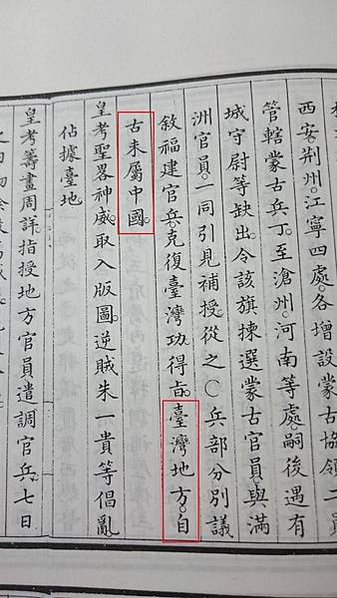 西安。荊州。江寧四處。各增設蒙古協領二員
管轄蒙古兵丁。至滄州。河南等處。嗣後遇有
城守尉等缺出。令該旗揀選蒙古官員。與滿
洲官員。一同引見補授。從之○兵部分別議
敘福建官兵。克復臺灣功。得旨。臺灣地方。自
古未屬中國。
皇考聖畧神威。取入版圖。逆賊朱一貴等倡亂
佔據臺地。
皇考籌畫周詳。指授地方官員遣調官兵。七日